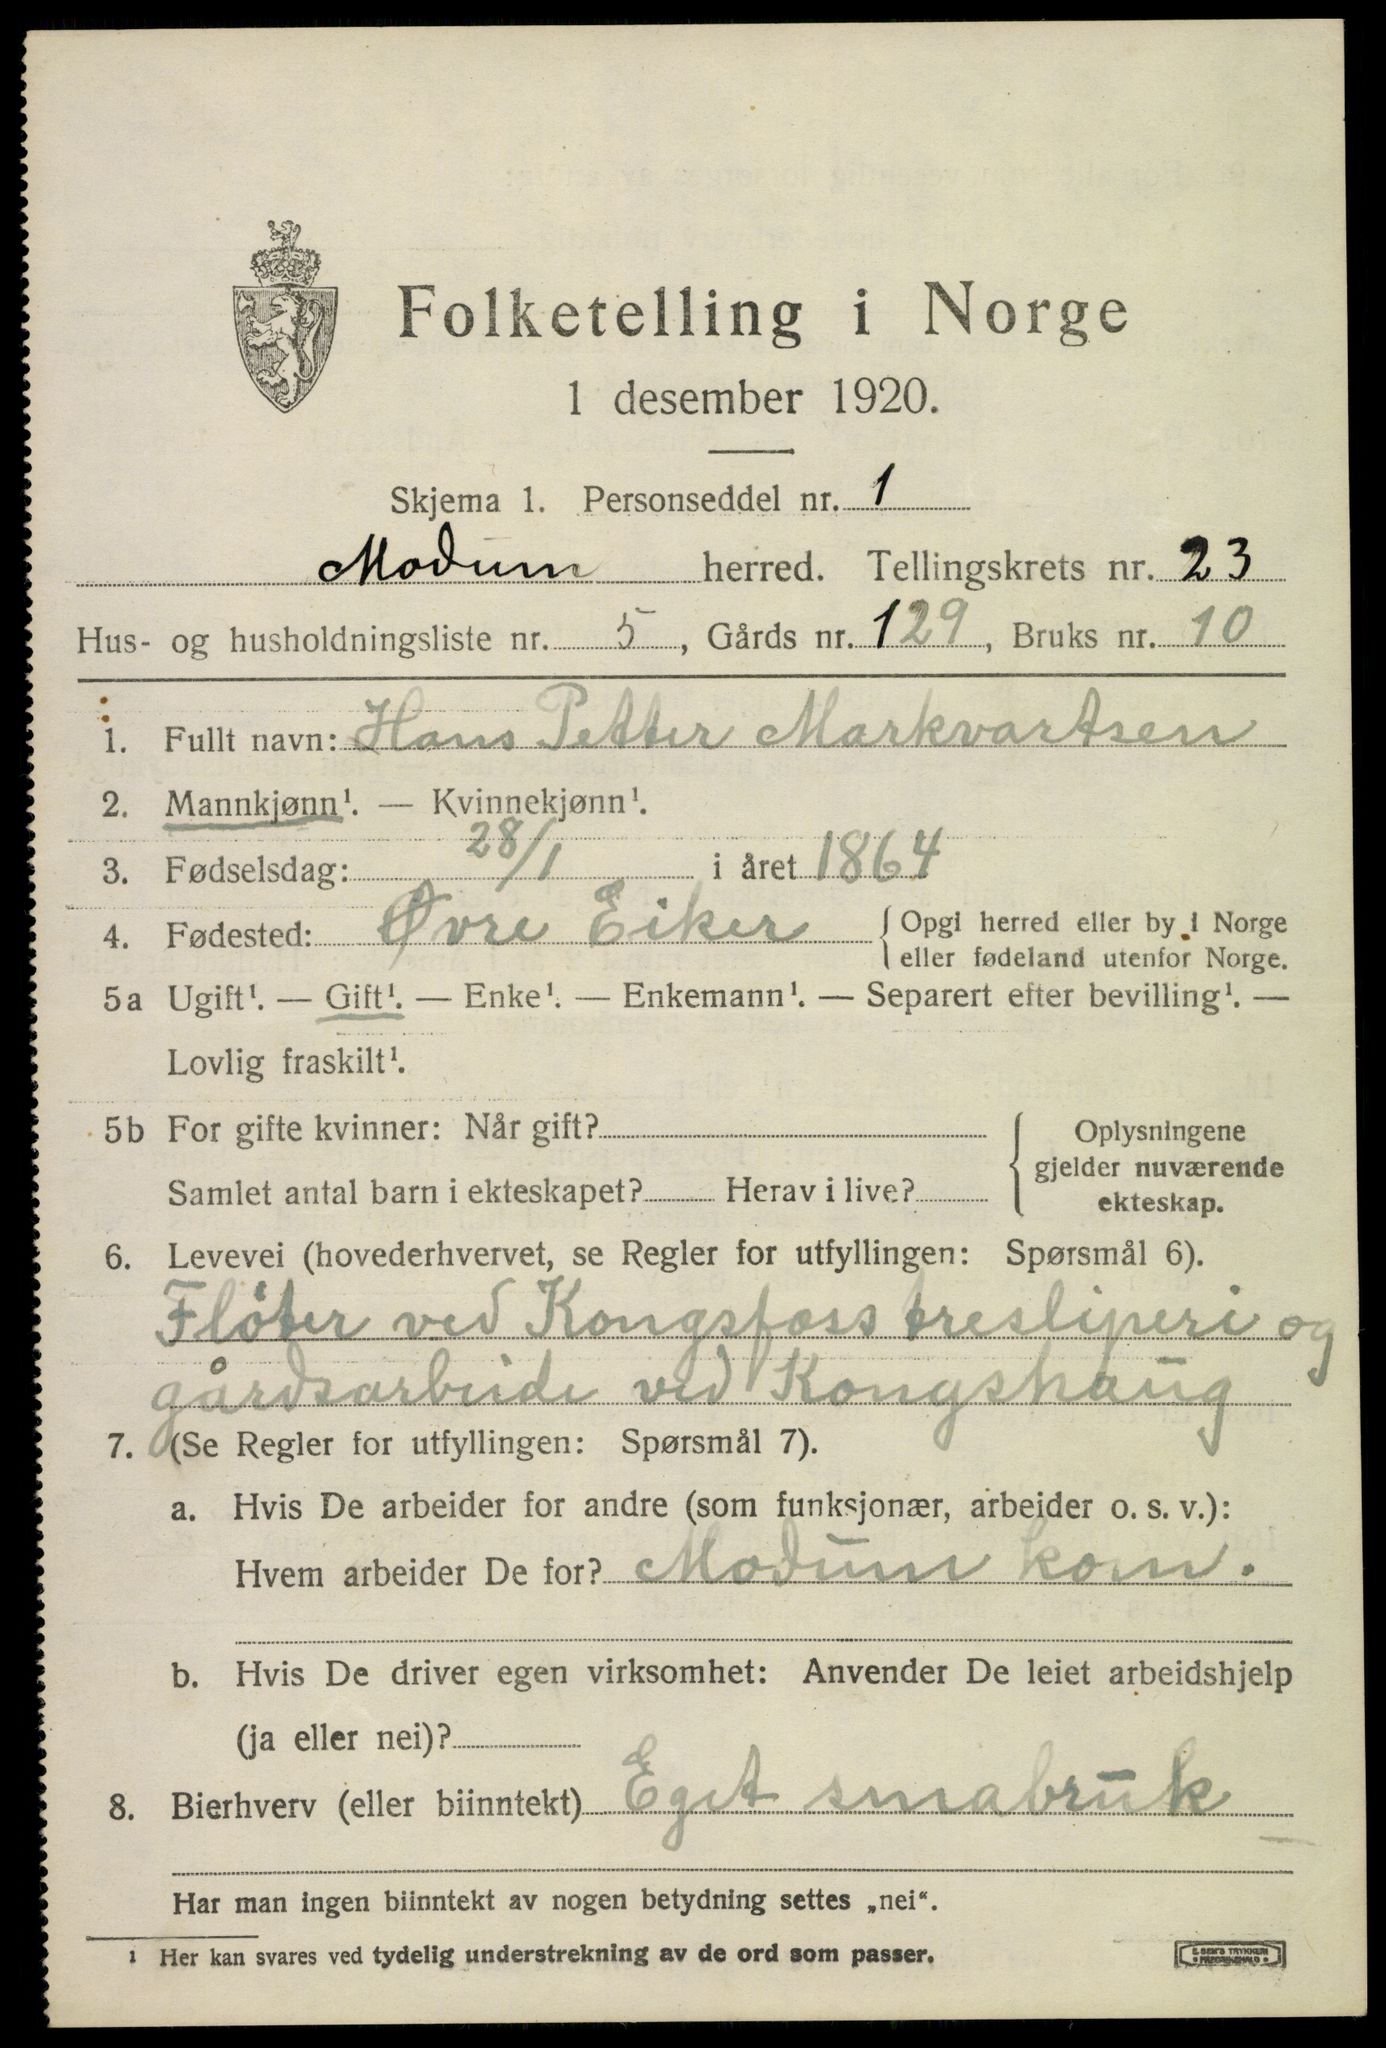 Folketelling i Norge
1 desember 1920.
Skjema 1. Personseddel nr. 1
Modum herred. Tellingskrets nr. 23
Hus- og husholdningsliste nr. 5, Gårds nr. 129, Bruks nr. 10
1. Fullt navn: Hans Petter Markvartsen
2. Mannkjønn¹. — Kvinnekjønn¹.
3. Fødselsdag: 28/1 i året 1864
4. Fødested: Øvre Eiker { Opgi herred eller by i Norge
eller fødeland utenfor Norge.
5a Ugift¹. — Gift¹. — Enke¹. — Enkemann¹. — Separert efter bevilling¹. —
Lovlig fraskilt¹.
5b For gifte kvinner: Når gift?
Samlet antal barn i ekteskapet? Herav i live?
{ Oplysningene
gjelder nuværende
ekteskap.
6. Levevei (hovederhvervet, se Regler for utfyllingen: Spørsmål 6).
Fløter ved Kongsfoss tresliperi og
gårdsarbeide ved Kongshaug
7. (Se Regler for utfyllingen: Spørsmål 7).
a. Hvis De arbeider for andre (som funksjonær, arbeider o. s. v.):
Hvem arbeider De for? Modum kom.
b. Hvis De driver egen virksomhet: Anvender De leiet arbeidshjelp
(ja eller nei)?
8. Bierhverv (eller biinntekt) Eget smabruk
Har man ingen biinntekt av nogen betydning settes „nei“.
¹ Her kan svares ved tydelig understrekning av de ord som passer.